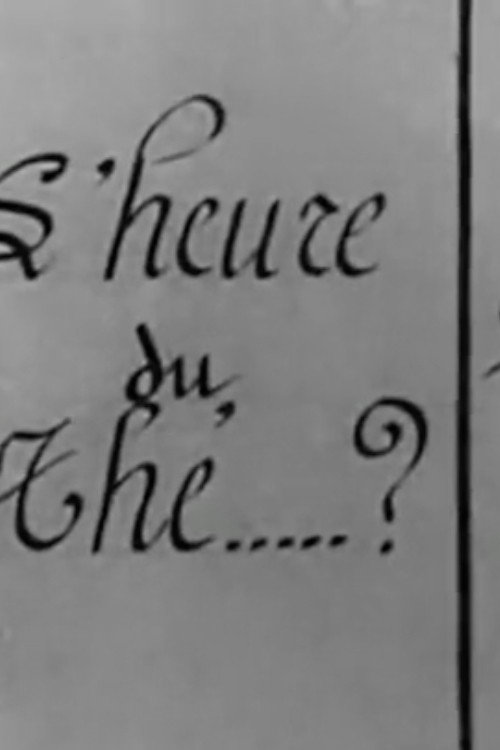 L'heure
du
Thé.....?